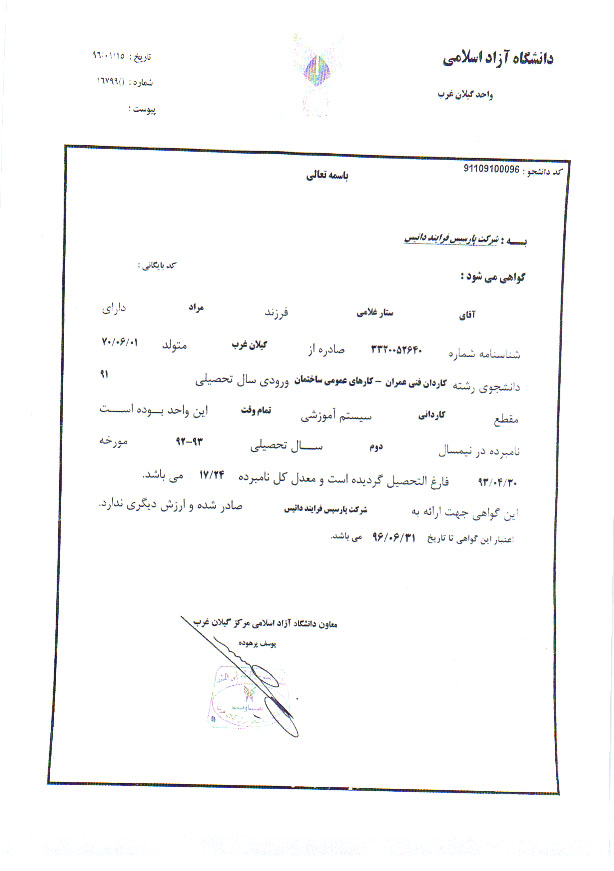 دانشگاه آزاد اسلامی
واحد گیلان غرب
تاریخ : ۹۶/۰۱/۱۵
شماره :
پیوست :
کد دانشجو : 91109100096
باسمه تعالی
بـــه : شرکت پارسیس فرایند داتیس
کد بایگانی :
گواهی می شود :
آقای ستار غلامی فرزند مراد دارای
شناسنامه شماره ۳۳۲۰۰۵۲۶۴۰ صادره از گیلان غرب متولد ۷۰/۰۶/۰۱
دانشجوی رشته کاردان فنی عمران -کارهای عمومی ساختمان ورودی سال تحصیلی ۹۱
مقطع کاردانی سیستم آموزشی تمام وقت این واحد بـــوده اســت
نامبرده در نیمسال دوم ســـال تحصیلی ۹۳-۹۲ مورخه
۹۳/۰۴/۳۰ فارغ التحصیل گردیده است و معدل کل نامبرده ۱۷/۲۴ می باشد.
این گواهی جهت ارائه به شرکت پارسیس فرایند داتیس صادر شده و ارزش دیگری ندارد.
اعتبار این گواهی تا تاریخ ۹۶/۰۶/۳۱ می باشد.
معاون دانشگاه آزاد اسلامی مرکز گیلان غرب
یوسف پرهوده